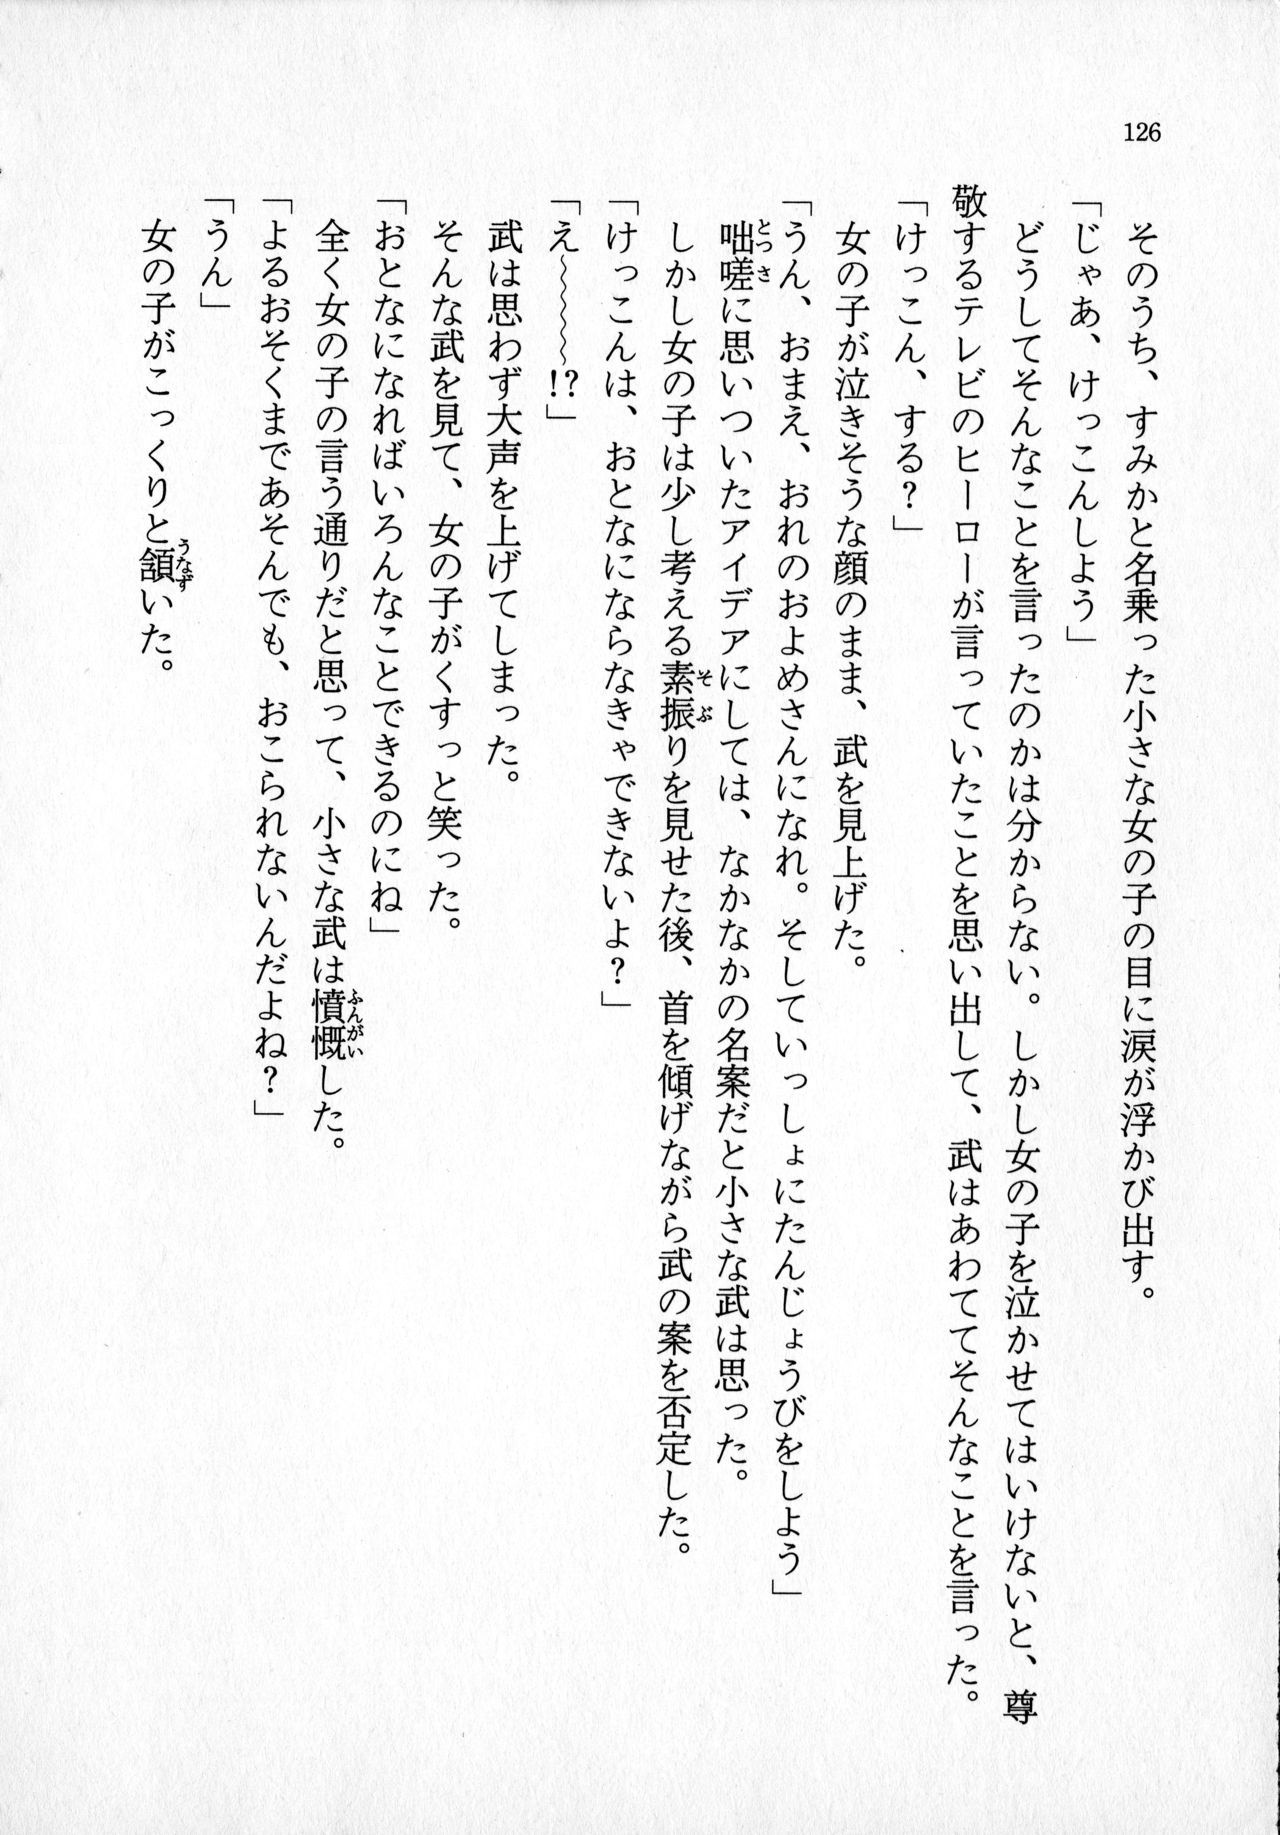 126
そのうち、すみかと名乗った小さな女の子の目に涙が浮かび出す。
「じゃあ、けっこんしよう」
どうしてそんなことを言ったのかは分からない。しかし女の子を泣かせてはいけないと、尊
敬するテレビのヒーローが言っていたことを思い出して、武はあわててそんなことを言った。
「けっこん、する？」
女の子が泣きそうな顔のまま、武を見上げた。
「うん、おまえ、おれのおよめさんになれ。そしていっしょにたんじょうびをしよう」
咄嗟とっさに思いついたアイデアにしては、なかなかの名案だと小さな武は思った。
しかし女の子は少し考える素振そぶりを見せた後、首を傾げながら武の案を否定した。
「けっこんは、おとなにならなきゃできないよ？」
「え～～～～!?」
武は思わず大声を上げてしまった。
そんな武を見て、女の子がくすっと笑った。
「おとなになればいろんなことできるのにね」
全く女の子の言う通りだと思って、小さな武は憤慨ふんがいした。
「よるおそくまであそんでも、おこられないんだよね？」
「うん」
女の子がこっくりと頷うなずいた。